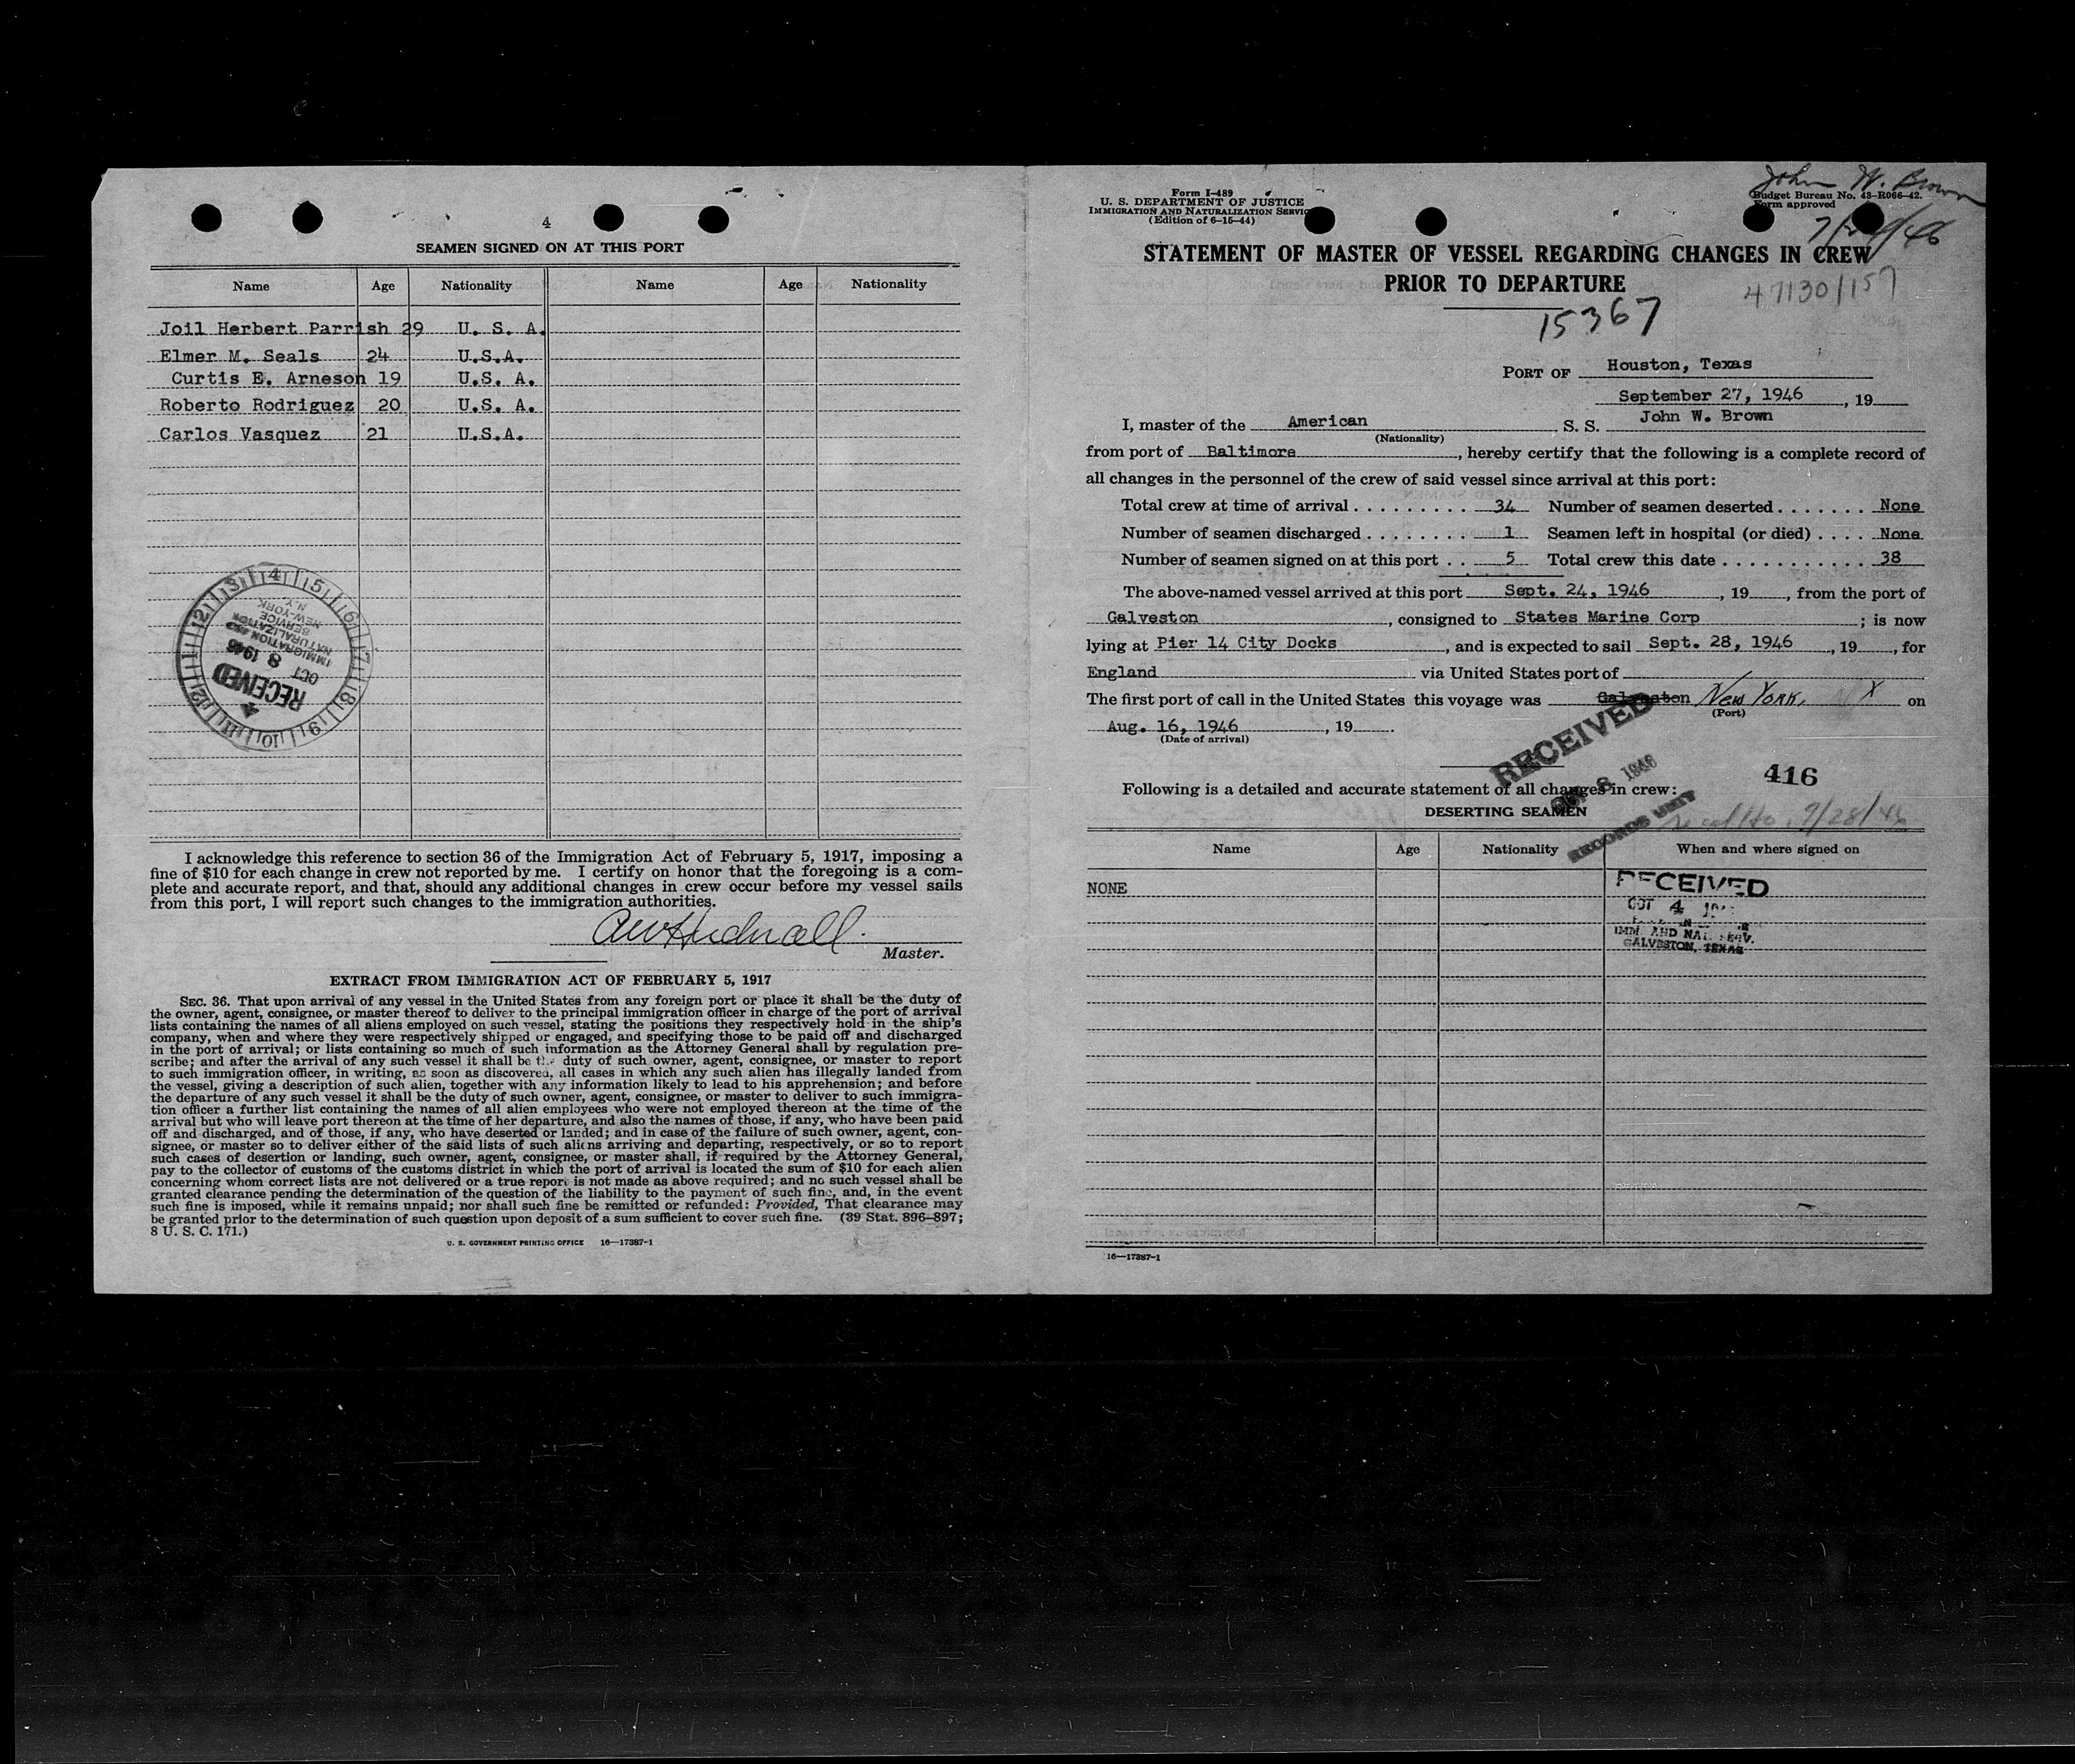 4
SEAMEN SIGNED ON AT THIS PORT
Name Age Nationality Name Age Nationality
Joil Herbert Parrish 29 U. S. A.
Elmer M. Seals 24 U.S.A.
Curtis E. Arneson 19 U.S. A.
Roberto Rodriguez 20 U.S. A.
Carlos Vasquez 21 U.S.A.
RECEIVED
OCT 8 1946
IMMIGRATION AND
NATURALIZATION
SERVICE
NEW-YORK
N.Y.
I acknowledge this reference to section 36 of the Immigration Act of February 5, 1917, imposing a
fine of $10 for each change in crew not reported by me. I certify on honor that the foregoing is a com-
plete and accurate report, and that, should any additional changes in crew occur before my vessel sails
from this port, I will report such changes to the immigration authorities.
Master.
EXTRACT FROM IMMIGRATION ACT OF FEBRUARY 5, 1917
SEC. 36. That upon arrival of any vessel in the United States from any foreign port or place it shall be the duty of
the owner, agent, consignee, or master thereof to deliver to the principal immigration officer in charge of the port of arrival
lists containing the names of all aliens employed on such vessel, stating the positions they respectively hold in the ship's
company, when and where they were respectively shipped or engaged, and specifying those to be paid off and discharged
in the port of arrival; or lists containing so much of such information as the Attorney General shall by regulation pre-
scribe; and after the arrival of any such vessel it shall be the duty of such owner, agent, consignee, or master to report
to such immigration officer, in writing, as soon as discovered, all cases in which any such alien has illegally landed from
the vessel, giving a description of such alien, together with any information likely to lead to his apprehension; and before
the departure of any such vessel it shall be the duty of such owner, agent, consignee, or master to deliver to such immigra-
tion officer a further list containing the names of all alien employees who were not employed thereon at the time of the
arrival but who will leave port thereon at the time of her departure, and also the names of those, if any, who have been paid
off and discharged, and of those, if any, who have deserted or landed; and in case of the failure of such owner, agent, con-
signee, or master so to deliver either of the said lists of such aliens arriving and departing, respectively, or so to report
such cases of desertion or landing, such owner, agent, consignee, or master shall, if required by the Attorney General,
pay to the collector of customs of the customs district in which the port of arrival is located the sum of $10 for each alien
concerning whom correct lists are not delivered or a true report is not made as above required; and no such vessel shall be
granted clearance pending the determination of the question of the liability to the payment of such fine, and, in the event
such fine is imposed, while it remains unpaid; nor shall such fine be remitted or refunded: Provided, That clearance may
be granted prior to the determination of such question upon deposit of a sum sufficient to cover such fine. (39 Stat. 896–897;
8 U. S. C. 171.)
U. S. GOVERNMENT PRINTING OFFICE 16—17387-1
John W. Brown
Form I-489
U. S. DEPARTMENT OF JUSTICE
IMMIGRATION AND NATURALIZATION SERVICE
(Edition of 6-15-44)
Budget Bureau No. 43-R066-42.
Form approved
STATEMENT OF MASTER OF VESSEL REGARDING CHANGES IN CREW
PRIOR TO DEPARTURE
47130/157
15367
PORT OF Houston, Texas
September 27, 1946, 19
I, master of the American S. S. John W. Brown
(Nationality)
from port of Baltimore, hereby certify that the following is a complete record of
all changes in the personnel of the crew of said vessel since arrival at this port:
Total crew at time of arrival . . . . . . . . . 34 Number of seamen deserted . . . . . . . None
Number of seamen discharged . . . . . . . . 1 Seamen left in hospital (or died) . . . . None
Number of seamen signed on at this port . . 5 Total crew this date . . . . . . . . . . . . 38
The above-named vessel arrived at this port Sept. 24, 1946, 19, from the port of
Galveston, consigned to States Marine Corp; is now
lying at Pier 14 City Docks, and is expected to sail Sept. 28, 1946, 19, for
England via United States port of
The first port of call in the United States this voyage was Galveston New York, on
(Port)
Aug. 16, 1946, 19.
(Date of arrival)
RECEIVED
8 1946
RECORDS UNIT
416
Following is a detailed and accurate statement of all changes in crew:
DESERTING SEAMEN
9/28/46
Name Age Nationality When and where signed on
NONE
RECEIVED
OCT 4
IMM. AND NAT. SERV.
GALVESTON, TEXAS
16—17387-1